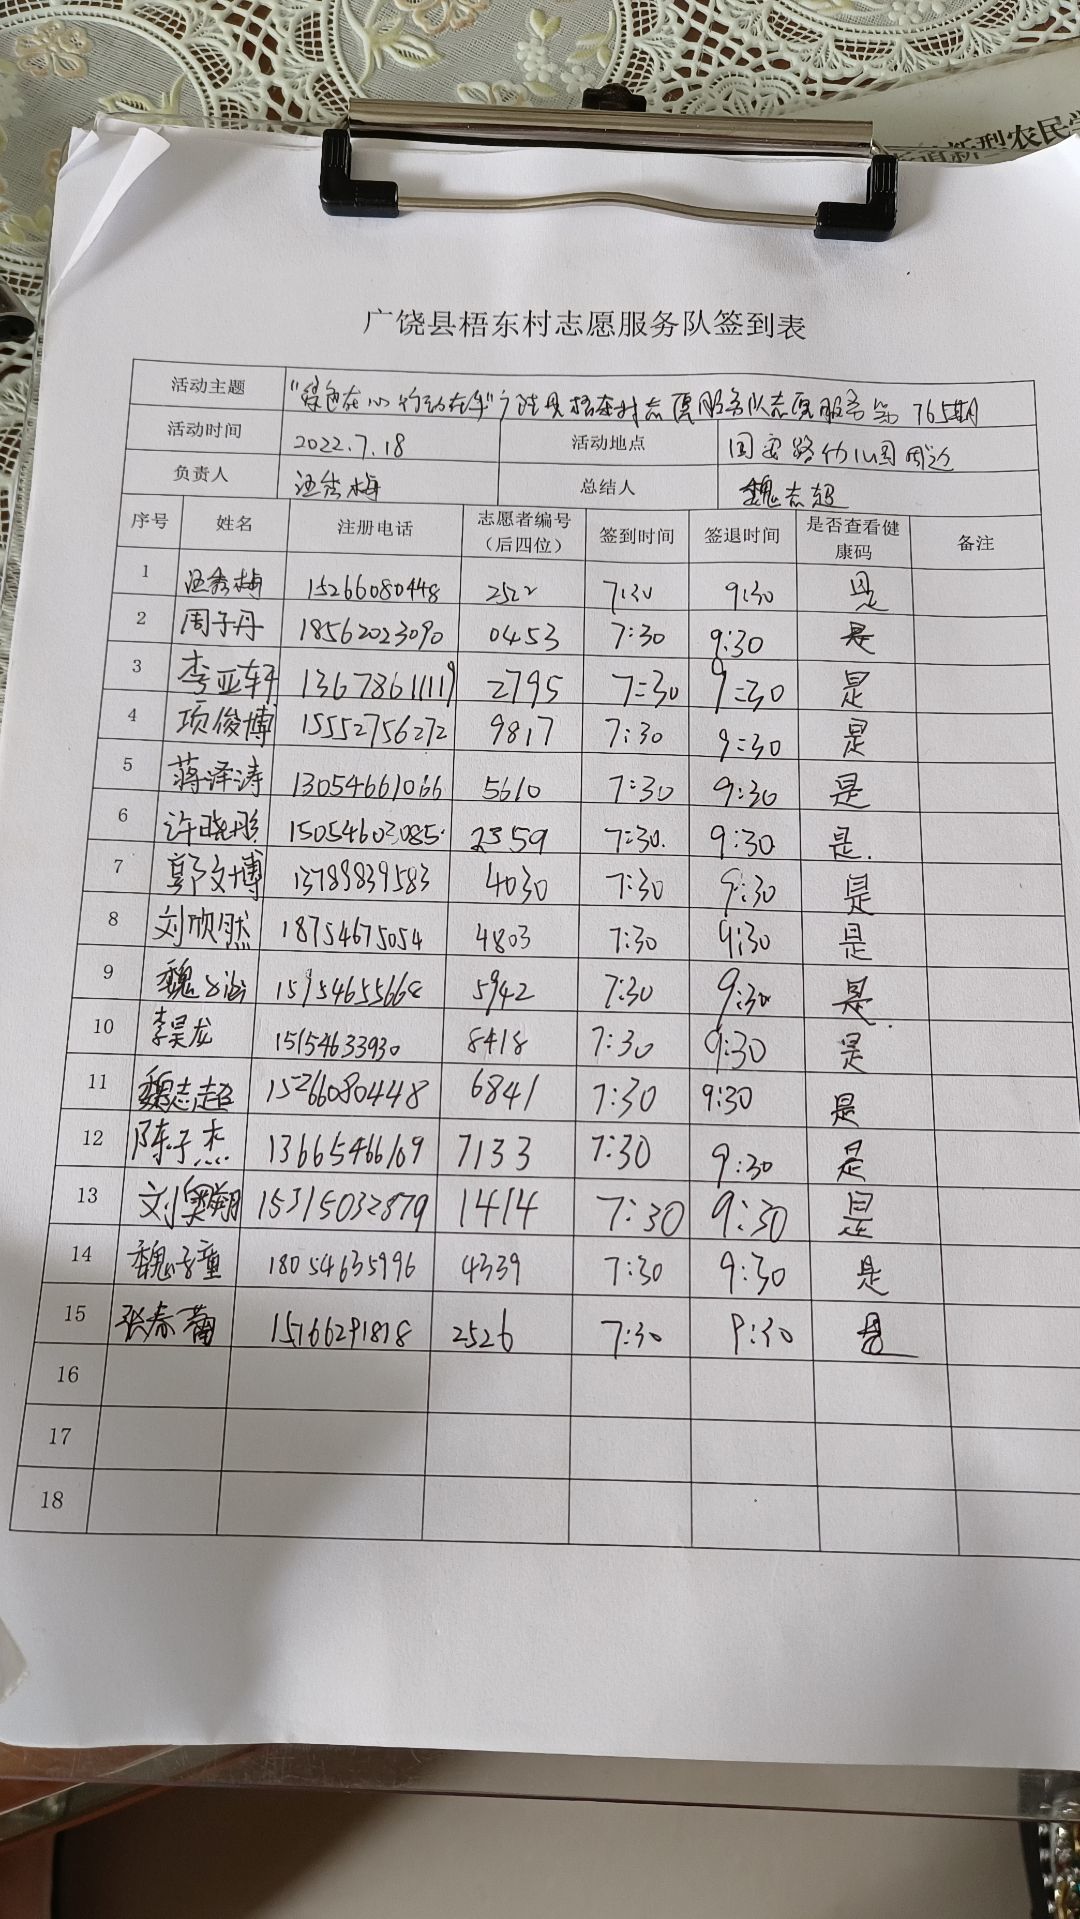 新型农民学
广饶县梧东村志愿服务队签到表
活动主题 "绿色在心 行动在手"广饶县梧东村志愿服务队志愿服务第765期
活动时间 2022.7.18 活动地点 国安路幼儿园周边
负责人 汪秀梅 总结人 魏志超
序号 姓名 注册电话 志愿者编号（后四位） 签到时间 签退时间 是否查看健康码 备注
1 汪秀梅 15266080448 2522 7:30 9:30 是
2 周子丹 18562023090 0453 7:30 9:30 是
3 李亚轩 13678611119 2795 7:30 9:30 是
4 项俊博 15552756272 9817 7:30 9:30 是
5 蒋泽涛 13054661066 5610 7:30 9:30 是
6 许晓彤 15054602085. 2359 7:30. 9:30 是.
7 郭文博 13789839583 4030 7:30 9:30 是
8 刘欣然 18754675054 4803 7:30 9:30 是
9 魏 15954655668 5942 7:30 9:30 是.
10 李昊龙 15154633930 8418 7:30 9:30 是
11 魏志超 15266080448 6841 7:30 9:30 是
12 陈子杰 13665466169 7133 7:30 9:30 是
13 刘奥翔 15315032879 1414 7:30 9:30 是
14 魏子童 18054635996 4339 7:30 9:30 是
15 张春 15166291818 2526 7:30 9:30 是
16
17
18